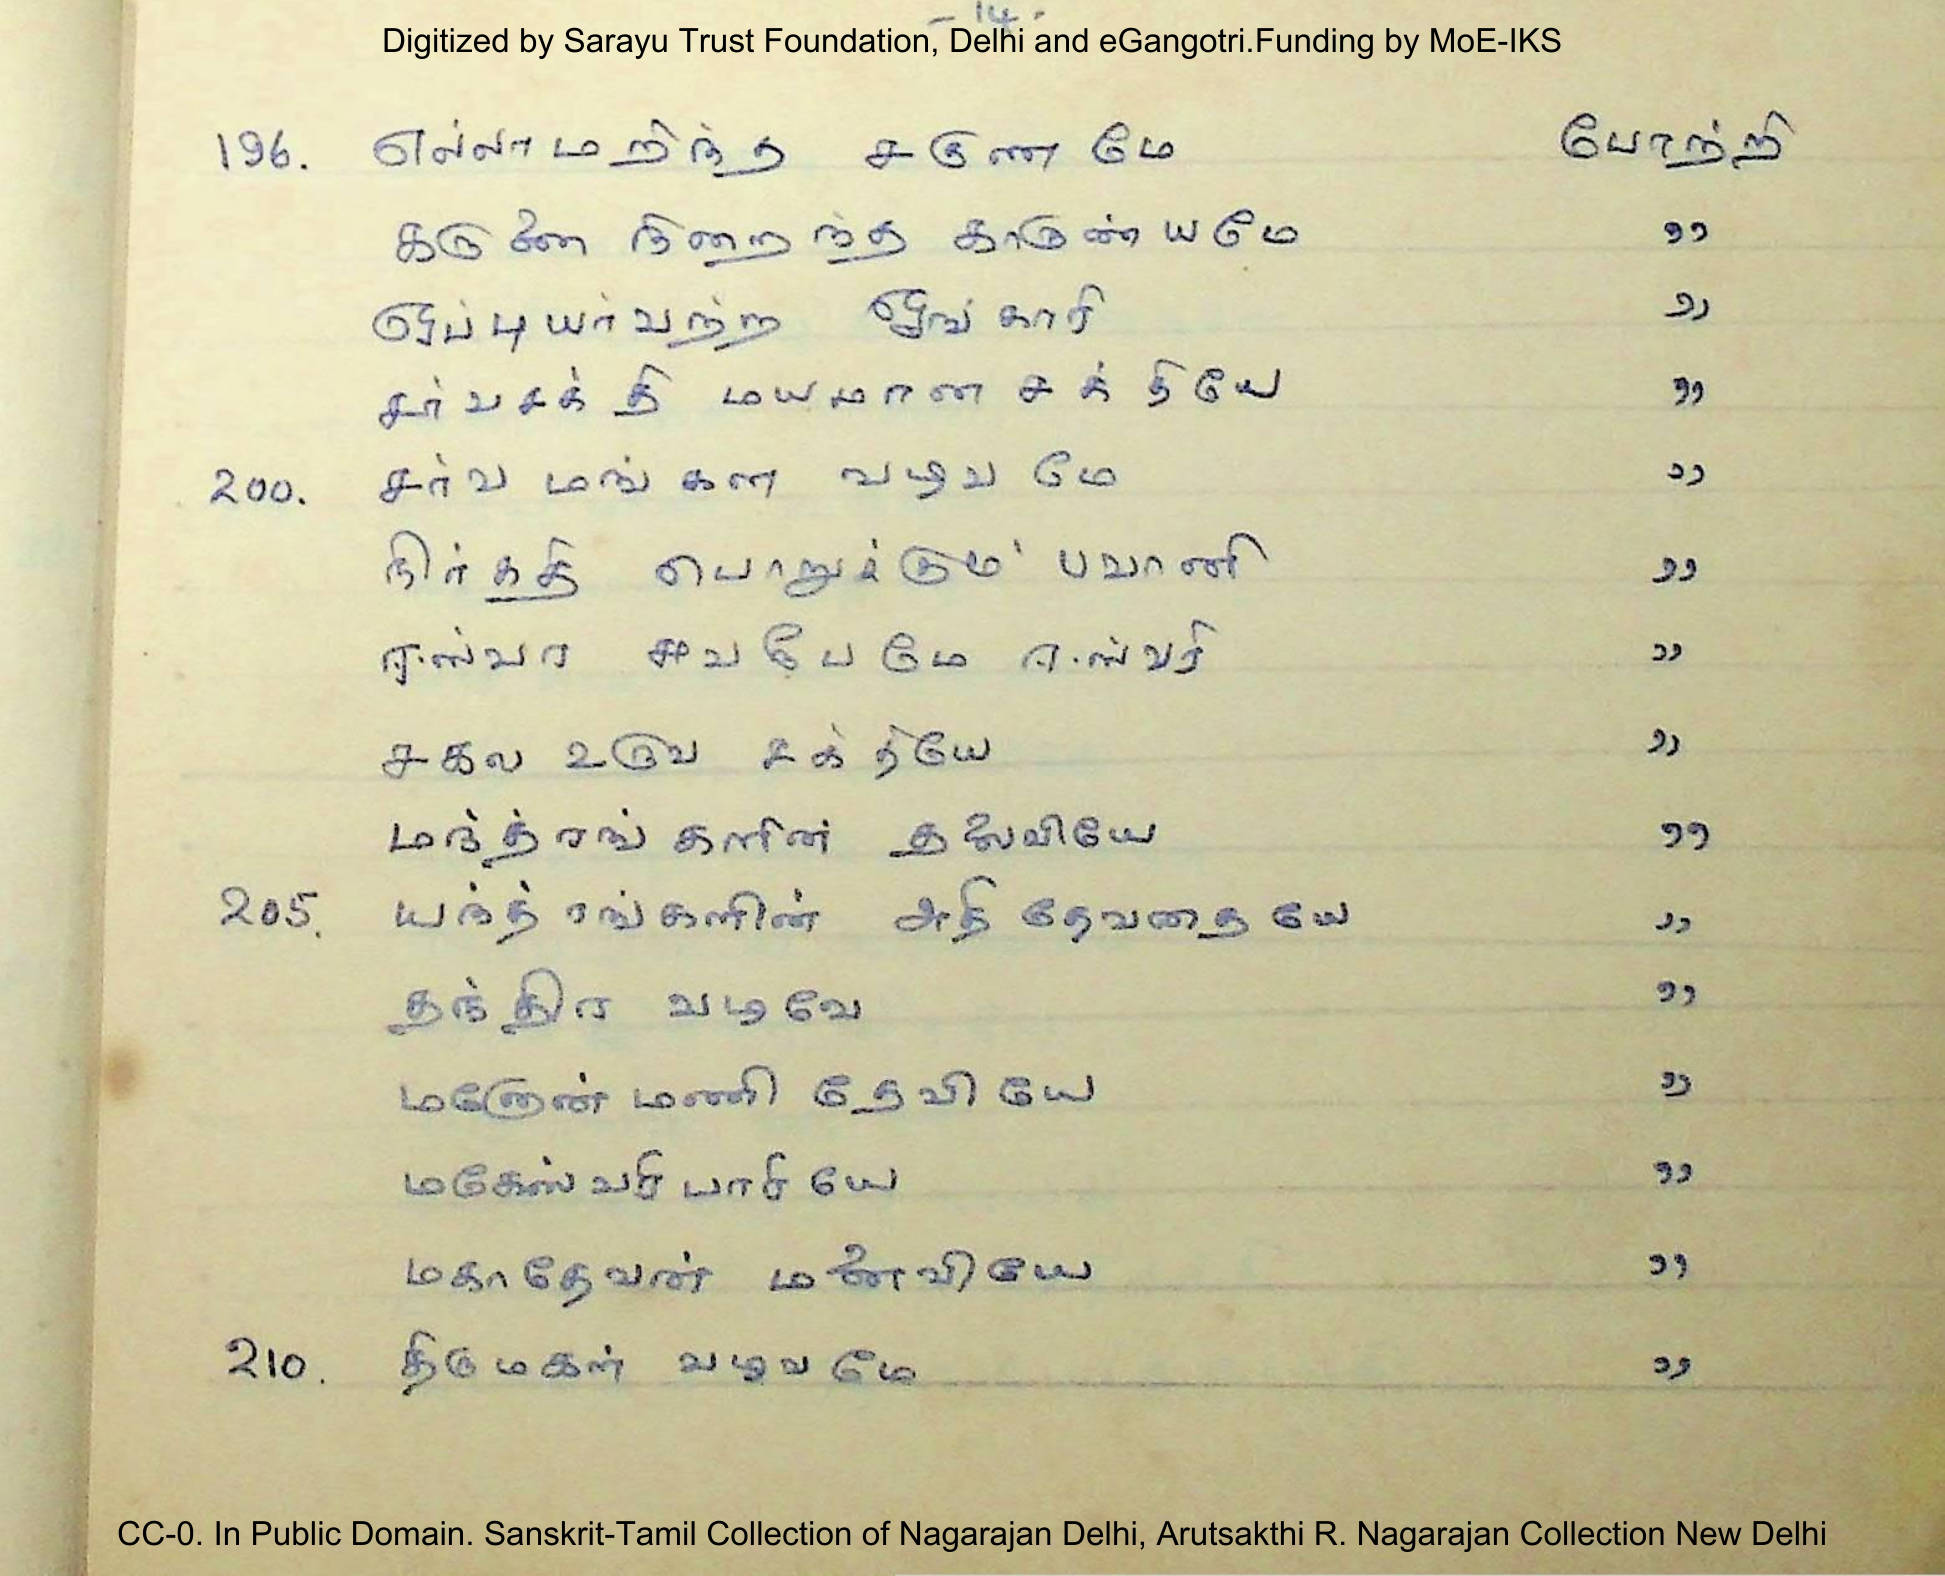 - 14 -
Digitized by Sarayu Trust Foundation, Delhi and eGangotri.Funding by MoE-IKS
196. எல்லாமறிந்த சகுணமே போற்றி
கருணை நிறைந்த காருண்யமே ,,
ஒப்புயர்வற்ற ஓங்காரி ,,
சர்வசக்தி மயமான சக்தியே ,,
200. சர்வ மங்கள வழவமே ,,
நிர்கதி பொறுக்கும் பவானி ,,
ஈஸ்வர ஈஸ்வரி ,,
சகல உருவ சக்தியே ,,
மந்த்ரங்களின் தலைவியே ,,
205. யந்த்ரங்களின் அதி தேவதையே ,,
தந்திர வடிவே ,,
மனோன்மணி தேவியே ,,
மகேஸ்வரி பாரியே ,,
மகாதேவன் மனைவியே ,,
210. திருமகள் வழவமே ,,
CC-0. In Public Domain. Sanskrit-Tamil Collection of Nagarajan Delhi, Arutsakthi R. Nagarajan Collection New Delhi